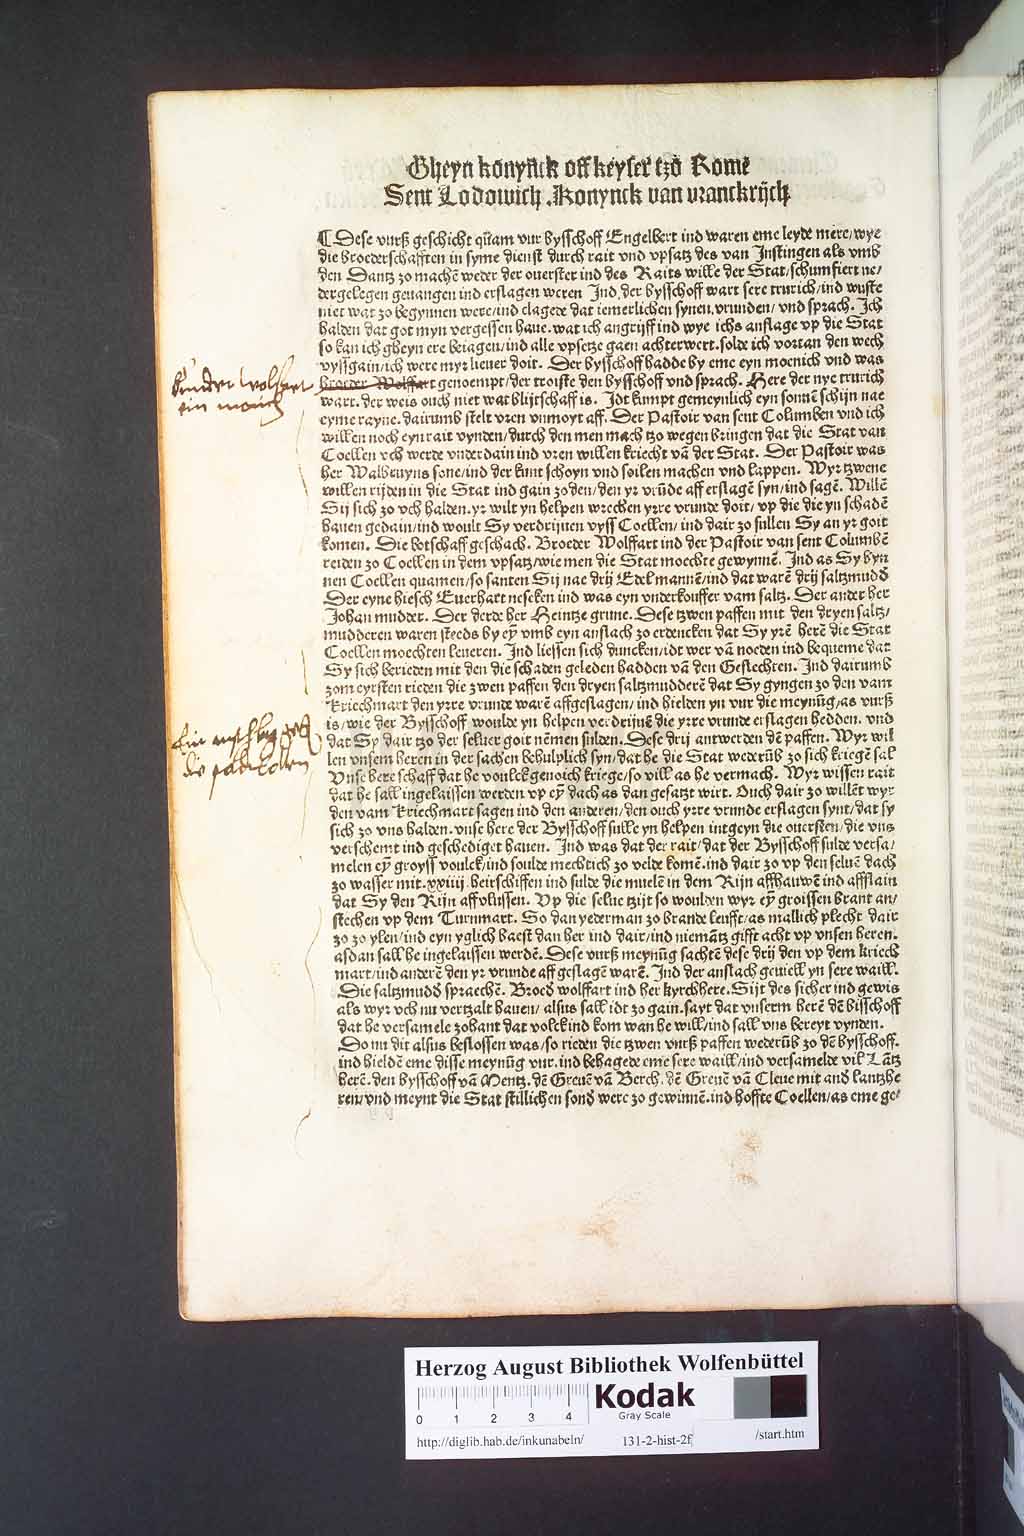 Gheyn konynck off keyser tzo Rome
Sent Lodowich. Konynck van vranckrijch
Dese vurß geschicht quam vur bysschoff Engelbert ind waren eme leyde mere/wye
die broederschafften in syme dienst durch rait vnd vpsatz des van Instingen als vmb
den Dantz zo machē weder der ouerster ind des Raits wille der Stat/schumfiert ne/
dergelegen geuangen ind erslagen weren Ind der bysschoff wart sere trurich/ind wuste
niet wat zo begynnen were/ind clagede dat iemerlichen synen vrunden/vnd sprach. Ich
halden dat got myn vergessen haue. wat ich angrijff ind wye ichs anslage vp die Stat
so kan ich gheyn ere beiagen/ind alle vpsetze gaen achterwert. solde ich vortan den wech
vyssgain/ich were myr lieuer doit. Der bysschoff hadde by eme eyn moenich vnd was
broeder Wolffart genoempt/der troiste den bysschoff vnd sprach. Here der nye trurich
wart. der weis ouch niet wat blijtschaff is. Idt kumpt gemeynlich eyn sonnē schijn nae
eyme rayne. dairumb stelt vren vnmoyt aff. Der Pastoir van sent Columben vnd ich
willen noch eyn rait vynden/durch den men mach tzo wegen bringen dat die Stat van
Coellen vch werde vnderdain ind vren willen kriecht vā der Stat. Der Pastoir was
her Walbruyns sone/ind der kunt schoyn vnd soilen machen vnd lappen. Wyr tzwene
willen rijden in die Stat ind gain zo den/den yr vrūde aff erslagē syn/ind sagē. Willē
Sij sich zo vch halden. yr wilt yn helpen wrechen yrre vrunde doit/vp die die yn schadē
hauen gedain/ind woult Sy verdrijuen vyss Coellen/ind dair zo sullen Sy an yr goit
komen. Die botschaff geschach. Broeder Wolffart ind der Pastoir van sent Columbē
reiden zo Coellen in dem vpsatz/wie men die Stat moechte gewynnē. Ind as Sy byn
nen Coellen quamen/so santen Sij nae drij Edelmannē/ind dat warē drij saltzmudd
Der eyne hiesch Euerhart nescken ind was eyn vnderkouffer vam saltz. Der ander her
Johan mudder. Der derde her Heintze grune. Dese tzwen paffen mit den dryen saltz/
mudderen waren steeds by eȳ vmb eyn anslach zo erdencken dat Sy yrē herē die Stat
Coellen moechten leueren. Ind liessen sich duncken/idt wer vā noeden ind bequeme dat
Sy sich berieden mit den die schaden geleden hadden vā den Geslechten. Ind dairumb
zom eyrsten rieden die zwen paffen den dryen saltzmudderē dat Sy gyngen zo den vam
kriechmart den yrre vrunde warē affgeslagen/ind hielden yn vur die meynūg/as vurß
is/wie der Bysschoff woulde yn helpen verdrijuē die yrre vrunde erslagen hedden. vnd
dat Sy dair tzo der seluer goit nēmen sulden. Dese drij antwerden dē paffen. Wyr wil
len vnsem heren in der sachen behulplich syn/dat he die Stat wederūb zo sich kriegē sal
Vnse here schaff dat he voulck genoich kriege/so vill as he vermach. Wyr wissen rait
dat he sall ingelaissen werden vp eȳ dach as dan gesatzt wirt. Ouch dair zo willēt wyr
den vam kriechmart sagen ind den anderen/den ouch yrre vrunde erslagen synt/dat sy
sich zo vns halden. vnse here der Bysschoff sulle yn helpen intgeyn die ouersten/die vns
verschemt ind geschediget hauen. Ind was dat der rait/dat der Bysschoff sulde versa/
melen eȳ groyss voulck/ind soulde mechtich zo velde komē. ind dair zo vp den seluē dach
zo wasser mit. xxiiij. heirschiffen ind sulde die muelē in dem Rijn affhauwē ind affslain
dat Sy den Rijn affvlussen. Vp die selue tzijt so woulden wyr eȳ groissen brant an/
stechen vp dem Turnmart. So dan yederman zo brande leufft/as mallich plecht dair
zo zo ylen/ind eyn yglich haest dan her ind dair/ind niemātz gifft acht vp vnsen heren.
asdan sall he ingelaissen werdē. Dese vurß meynūg sachtē dese drij den vp dem kriech
mart/ind anderē den yr vrunde aff geslagē warē. Ind der anslach geuiell yn sere waill.
Die saltzmudd spraechē. Broed wolffart ind her kyrchhere. Sijt des sicher ind gewis
als wyr vch nu vertzalt hauen/alsus sall idt zo gain. sayt dat vnserm herē dē bisschoff
dat he versamele zohant dat volck ind kom wan he will/ind sall vns bereyt vynden.
Do nu dit alsus beslossen was/so rieden die tzwen vurß paffen wederūb zo dē bysschoff.
ind hieldē eme disse meynūg vur. ind behagede eme sere waill/ind versamelde vil Lātz
herē. den bysschoff vā Mentz. dē Greuē vā Berch. dē Greuē vā Cleue mit and lantzhe
ren/vnd meynt die Stat stillichen sond were zo gewinnē. ind hoffte Coellen/as eme ge/
bruder wolffart
ein monch
Ein anschlag
die
Herzog August Bibliothek Wolfenbüttel
0 1 2 3 4
Kodak
Gray Scale
http://diglib.hab.de/inkunabeln/ 131-2-hist-2f /start.htm